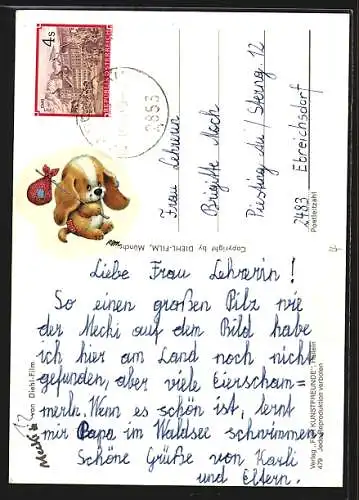 4 s
REPUBLIK ÖSTERREICH
2853
Frau Lehrerin
Brigitte Moch
Piesting Au / Sterng. 12
2483 Ebreichsdorf
Postleitzahl
Copyright by DIEHL-FILM, Münch
Liebe Frau Lehrerin!
So einen großen Pilz wie
der Mecki auf dem Bild habe
ich hier am Land noch nicht
gefunden, aber viele Eierscham=
merln. Wenn es schön ist, lernt
mir Papa im Waldsee schwimmen.
Schöne Grüße von Karli
und Eltern.
Mecki
von Diehl-Film
Verlag „FÜR KUNSTFREUNDE",
479 Jede Reproduktion verboten